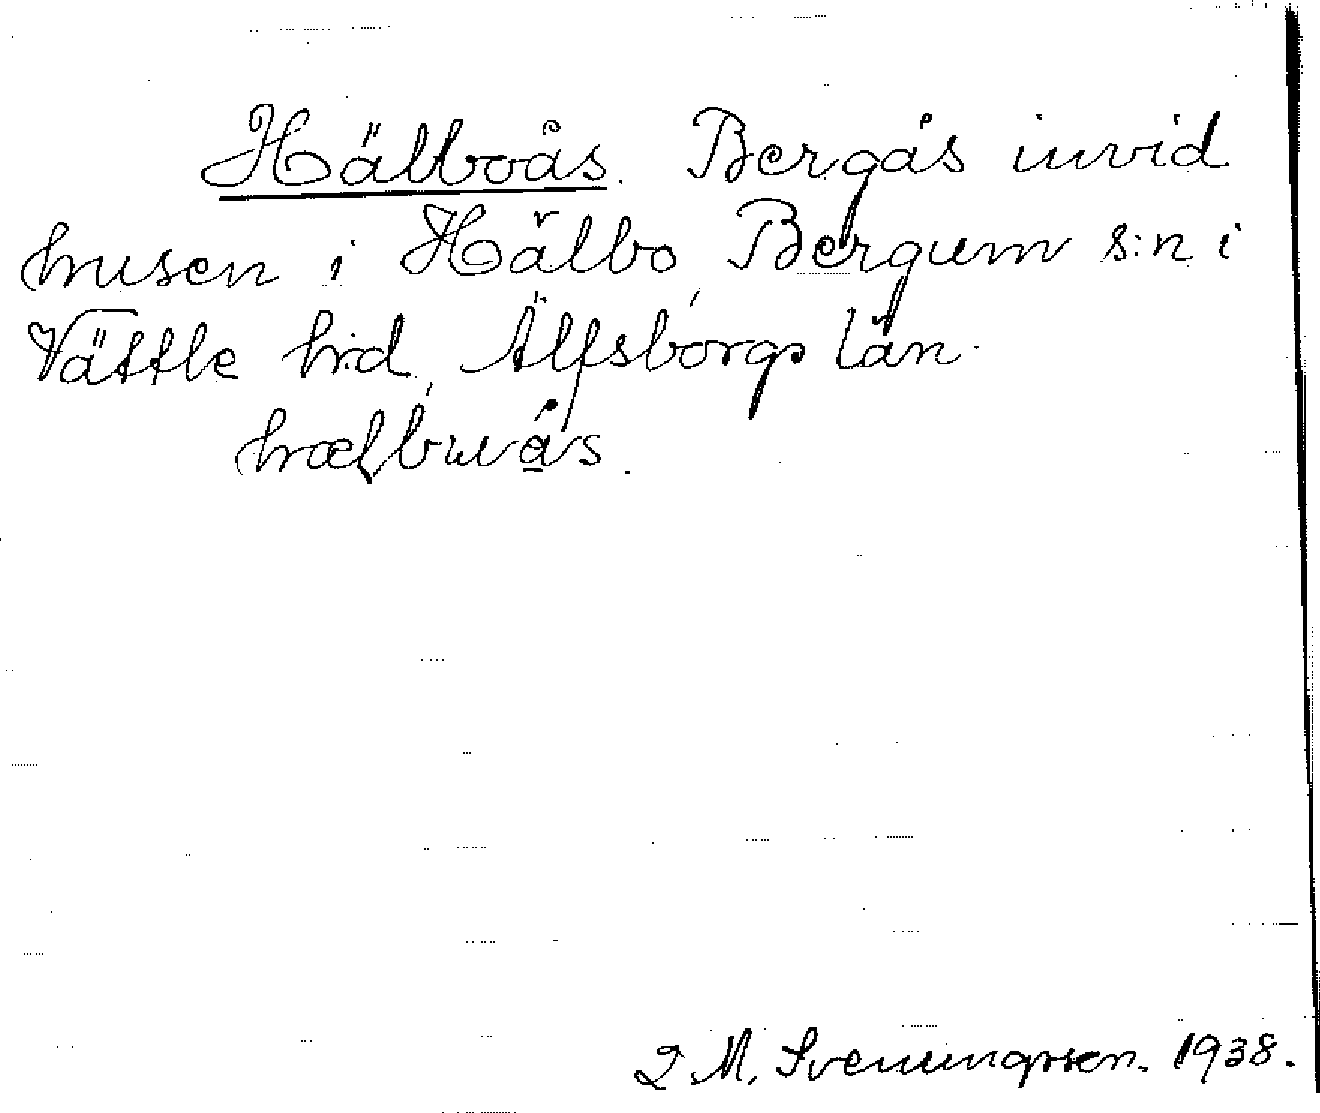 Hälboås. Bergås invid
husen i Hälbo, Bergum s:n i
Vättle h:d, Älfsborgs län.
Svenungsson. 1938.